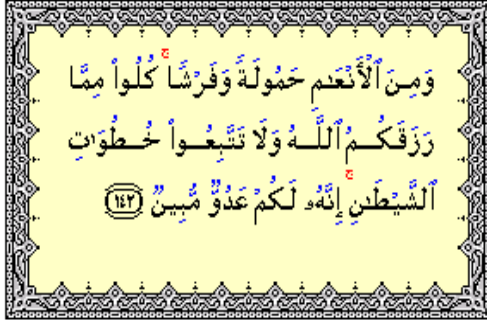 وَمِنَ ٱلْأَنْعَـٰمِ حَمُولَةً وَفَرْشًا ۚ كُلُوا۟ مِمَّا
رَزَقَكُـمُ ٱللَّـهُ وَلَا تَتَّبِعُـوا۟ خُـطُوَٰتِ
ٱلشَّيْطَـٰنِ ۚ إِنَّهُۥ لَكُمْ عَدُوٌّ مُّبِينٌ ﴿١٤٢﴾